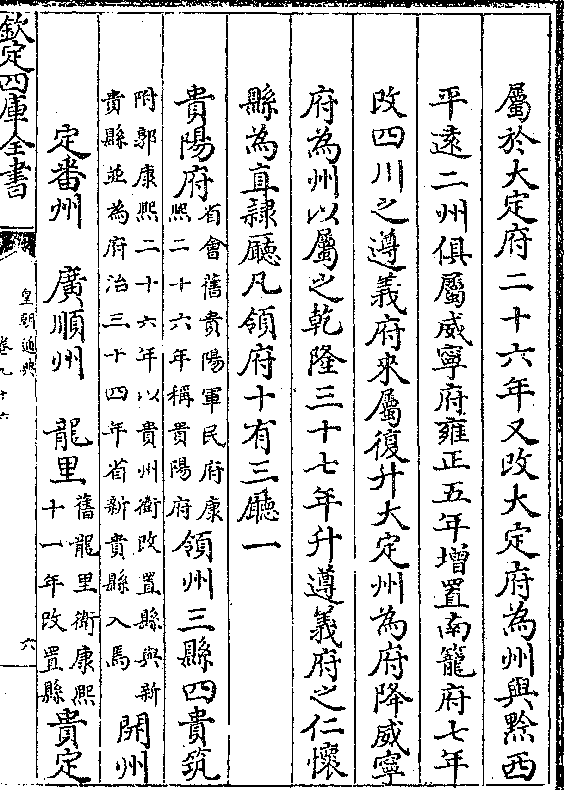 屬於大定府二十六年又改大定府為州與黔西
平遠二州俱屬威寧府雍正五年增置南籠府七年
改四川之遵義府來屬復升大定州為府降威寧
府為州以屬之乾隆三十七年升遵義府之仁懷
縣為直隸廳凡領府十有三廳一
貴陽府省會舊貴陽軍民府康熙二十六年稱貴陽府領州三縣四貴筑
附郭康熙二十六年以貴州衛改置縣與新貴縣並為府治三十四年省新貴縣入焉開州
定番州 廣順州 龍里舊龍里衛康熙十一年改置縣貴定
欽定四庫全書
皇朝通典
卷九十六
六